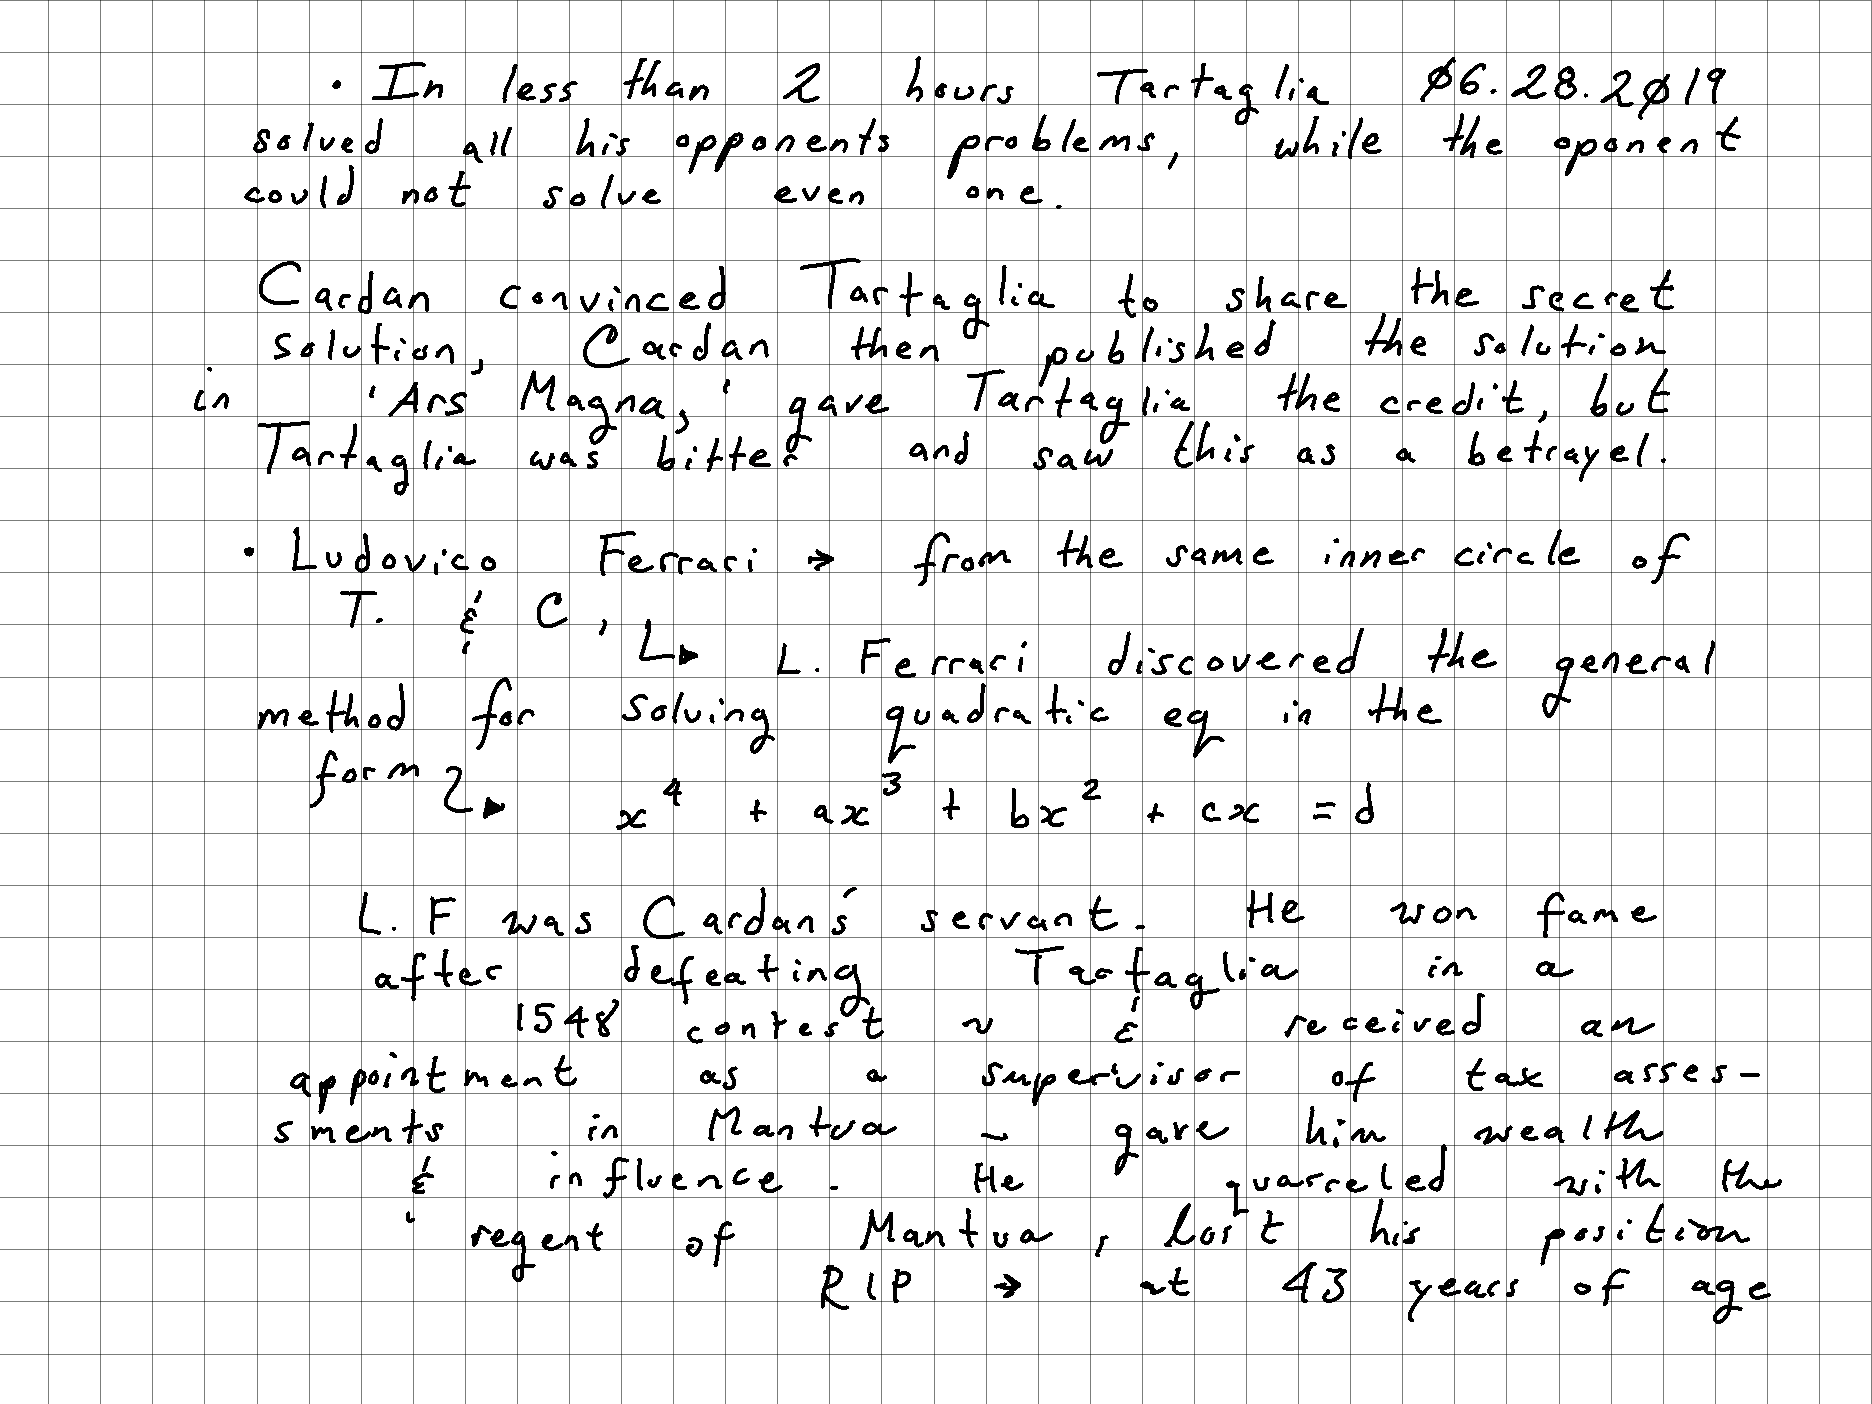 • In less than 2 hours Tartaglia 06.28.2019
solved all his opponents problems, while the oponent
could not solve even one.
Cardan convinced Tartaglia to share the secret
solution, Cardan then published the solution
in 'Ars Magna,' gave Tartaglia the credit, but
Tartaglia was bitter and saw this as a betrayel.
• Ludovico Ferrari → from the same inner circle of
T. & C,
↳ L. Ferrari discovered the general
method for solving quadratic eq in the
form ↳ x⁴ + ax³ + bx² + cx = d
L. F was Cardan's servant. He won fame
after defeating Tartaglia in a
1548 contest ~ & received an
appointment as a supervisor of tax asses-
sments in Mantua ~ gave him wealth
& influence. He quarreled with the
regent of Mantua, lost his position
RIP → at 43 years of age